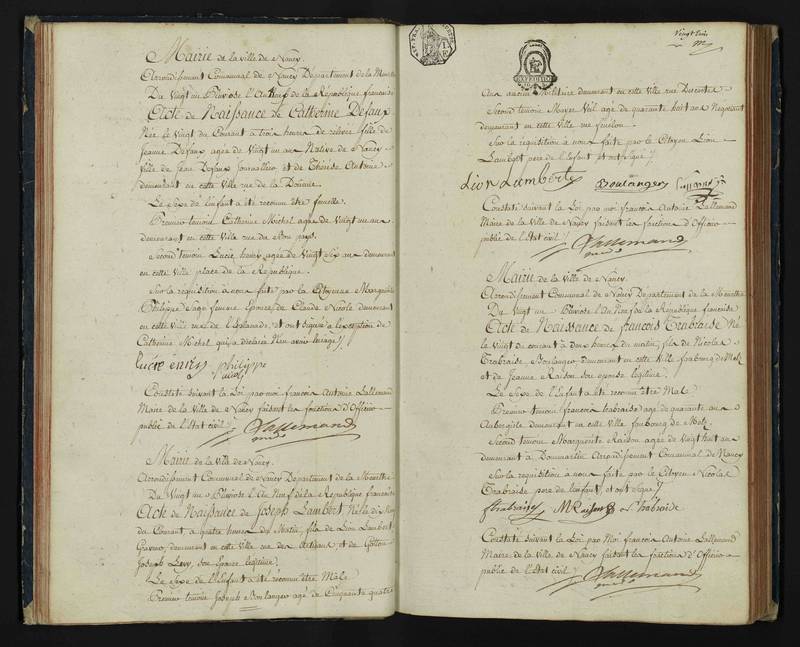 Mairie de la ville de Nancy.
Arrondissement Communal de Nancy Département de la Meurthe
Du Vingt un Pluviose l'an neuf de la République française
Acte de Naissance de Catherine Defaux
Née le Vingt du Courant à trois heures de relevée fille de
Jeanne Defaux agée de Vingt un an Native de Nancy
fille de Jean Defaux Journallier et de Thérèse Antoine
demeurant en cette Ville rue de la Douane
Le Sexe de l'enfant a été reconnu être femelle.
Premier temoin Catherine Michel agée de Vingt un an
demeurant en cette Ville rue du Bon pays.
Second temoin Lucie henry agée de Vingt Six an demeurant
en cette Ville place de la République.
Sur la requisition à nous faite par la Citoyenne Marguerite
Philippe Sage femme Epouse de Claude Nicole demeurant
en cette Ville rue de l'Esplanade, et ont signés à l'exception de
Catherine Michel qui a déclaré
lucie enry philippe
Constaté suivant la Loi par moi françois Antoine Lallemand
Maire de la Ville de Nancy faisant les fonctions d'Officier
public de l'Etat civil
Lallemand
Mairie de la ville de Nancy.
Arrondissement Communal de Nancy Département de la Meurthe
Du Vingt un Pluviose l'an Neuf de la République française
Acte de Naissance de Joseph Lambert Né le dix Neuf
du Courant, à quatre heures du Matin, fils de Lion Lambert
Graveur, demeurant en cette ville rue des Artisans et de Gotton
Joseph Levy, son Epouse légitime.
Le Sexe de l'Enfant a été reconnu être Mâle
Premier temoin Joseph Boulanger agé de Cinquante quatre
Vingt trois
Ans ancien Militaire demeurant en cette Ville rue Descartes
Second temoin Mayer Veil agé de quarante huit ans Negociant
demeurant en cette Ville rue fenelon.
Sur la requisition à nous faite par le Citoyen Lion
Lambert pere de l'Enfant et ont signé
Lion Lambert Boulanger
Constaté suivant la Loi par moi françois Antoine Lallemand
Maire de la Ville de Nancy faisant les fonctions d'Officier
public de l'Etat civil
Lallemand
Mairie de la Ville de Nancy
Arrondissement Communal de Nancy Departement de la Meurthe
Du Vingt un Pluviose l'An Neuf de la République française
Acte de Naissance de françois Trabraise Né
le vingt du courant à dix heures du matin, fils de Nicolas
Trabraise, Boulanger, demeurant en cette Ville faubourg de Metz
et de Jeanne Raison son epouse légitime.
Le Sexe de l'Enfant a été reconnu être Mâle
Premier temoin françois trabraise agé de quarante ans
Aubergiste demeurant en cette ville faubourg de Metz.
Second temoin Marguerite Raison agée de Vingt huit ans
demeurant à Dommartin Arrondissement Communal de Nancy
Sur la requisition à nous faite par le Citoyen Nicolas
Trabraise pere de l'enfant, et ont signé
M Raison
Constaté suivant la Loi par Moi françois Antoine Lallemand
Maire de la Ville de Nancy faisant les fonctions d'Officier
public de l'Etat civil
Lallemand